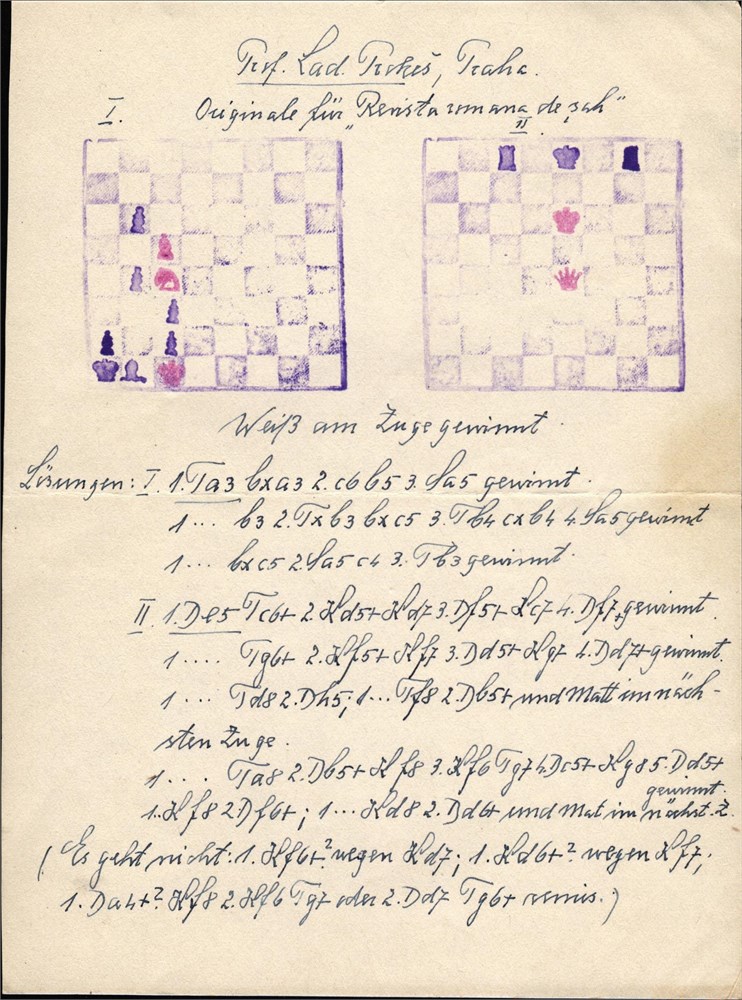 Prof. Lad. Prokeš, Praha.
I. Originale für "Revista romana de şah"
II.
Weiß am Zuge gewinnt.
Lösungen: I. 1. Ta3 bxa3 2. c6 b5 3. Sa5 gewinnt.
1... b3 2. Txb3 bxc5 3. Tb4 cxb4 4. Sa5 gewinnt
1... bxc5 2. Sa5 c4 3. Tb3 gewinnt.
II. 1. De5 Tc6+ 2. Kd5+ Kd7 3. Df5+ Kc7 4. Df7+ gewinnt.
1.... Tg6+ 2. Kf5+ Kf7 3. Dd5+ Kg7 4. Dd7+ gewinnt.
1... Td8 2. Dh5; 1... Tf8 2. Db5+ und Matt im näch-
sten Zuge.
1.... Ta8 2. Db5+ Kf8 3. Kf6 Tg7 4. Dc5+ Kg8 5. Dd5+
gewinnt.
1. Kf8 2. Df6+; 1... Kd8 2. Dd6+ und Mat im nächst. Z.
(Es geht nicht: 1. Kf6+? wegen Kd7; 1. Kd6+? wegen Kf7;
1. Da4+? Kf8 2. Kf6 Tg7 oder 2. Dd7 Tg6+ remis.)